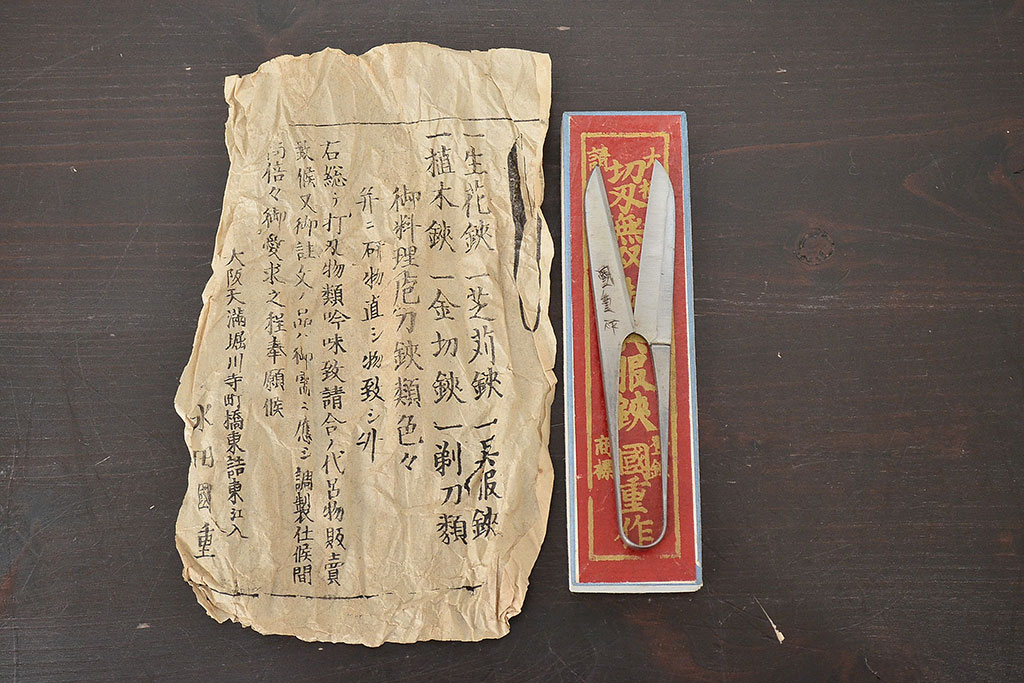 一生花鋏 一芝苅鋏 一呉服鋏
一植木鋏 一金切鋏 一剃刀類
御料理庖刀鋏類色々
并ニ研物直シ物致シ升
石総テ打刃物類吟味致請合ノ代呂物販賣
致候又御註文ノ品ハ御寄ニ應シ調製仕候間
倍々御愛求之程奉願候
大阪天満堀川寺町橋東詰東江入
水田國重
切刃無双
服鋏
國重作
請
商標
國重作